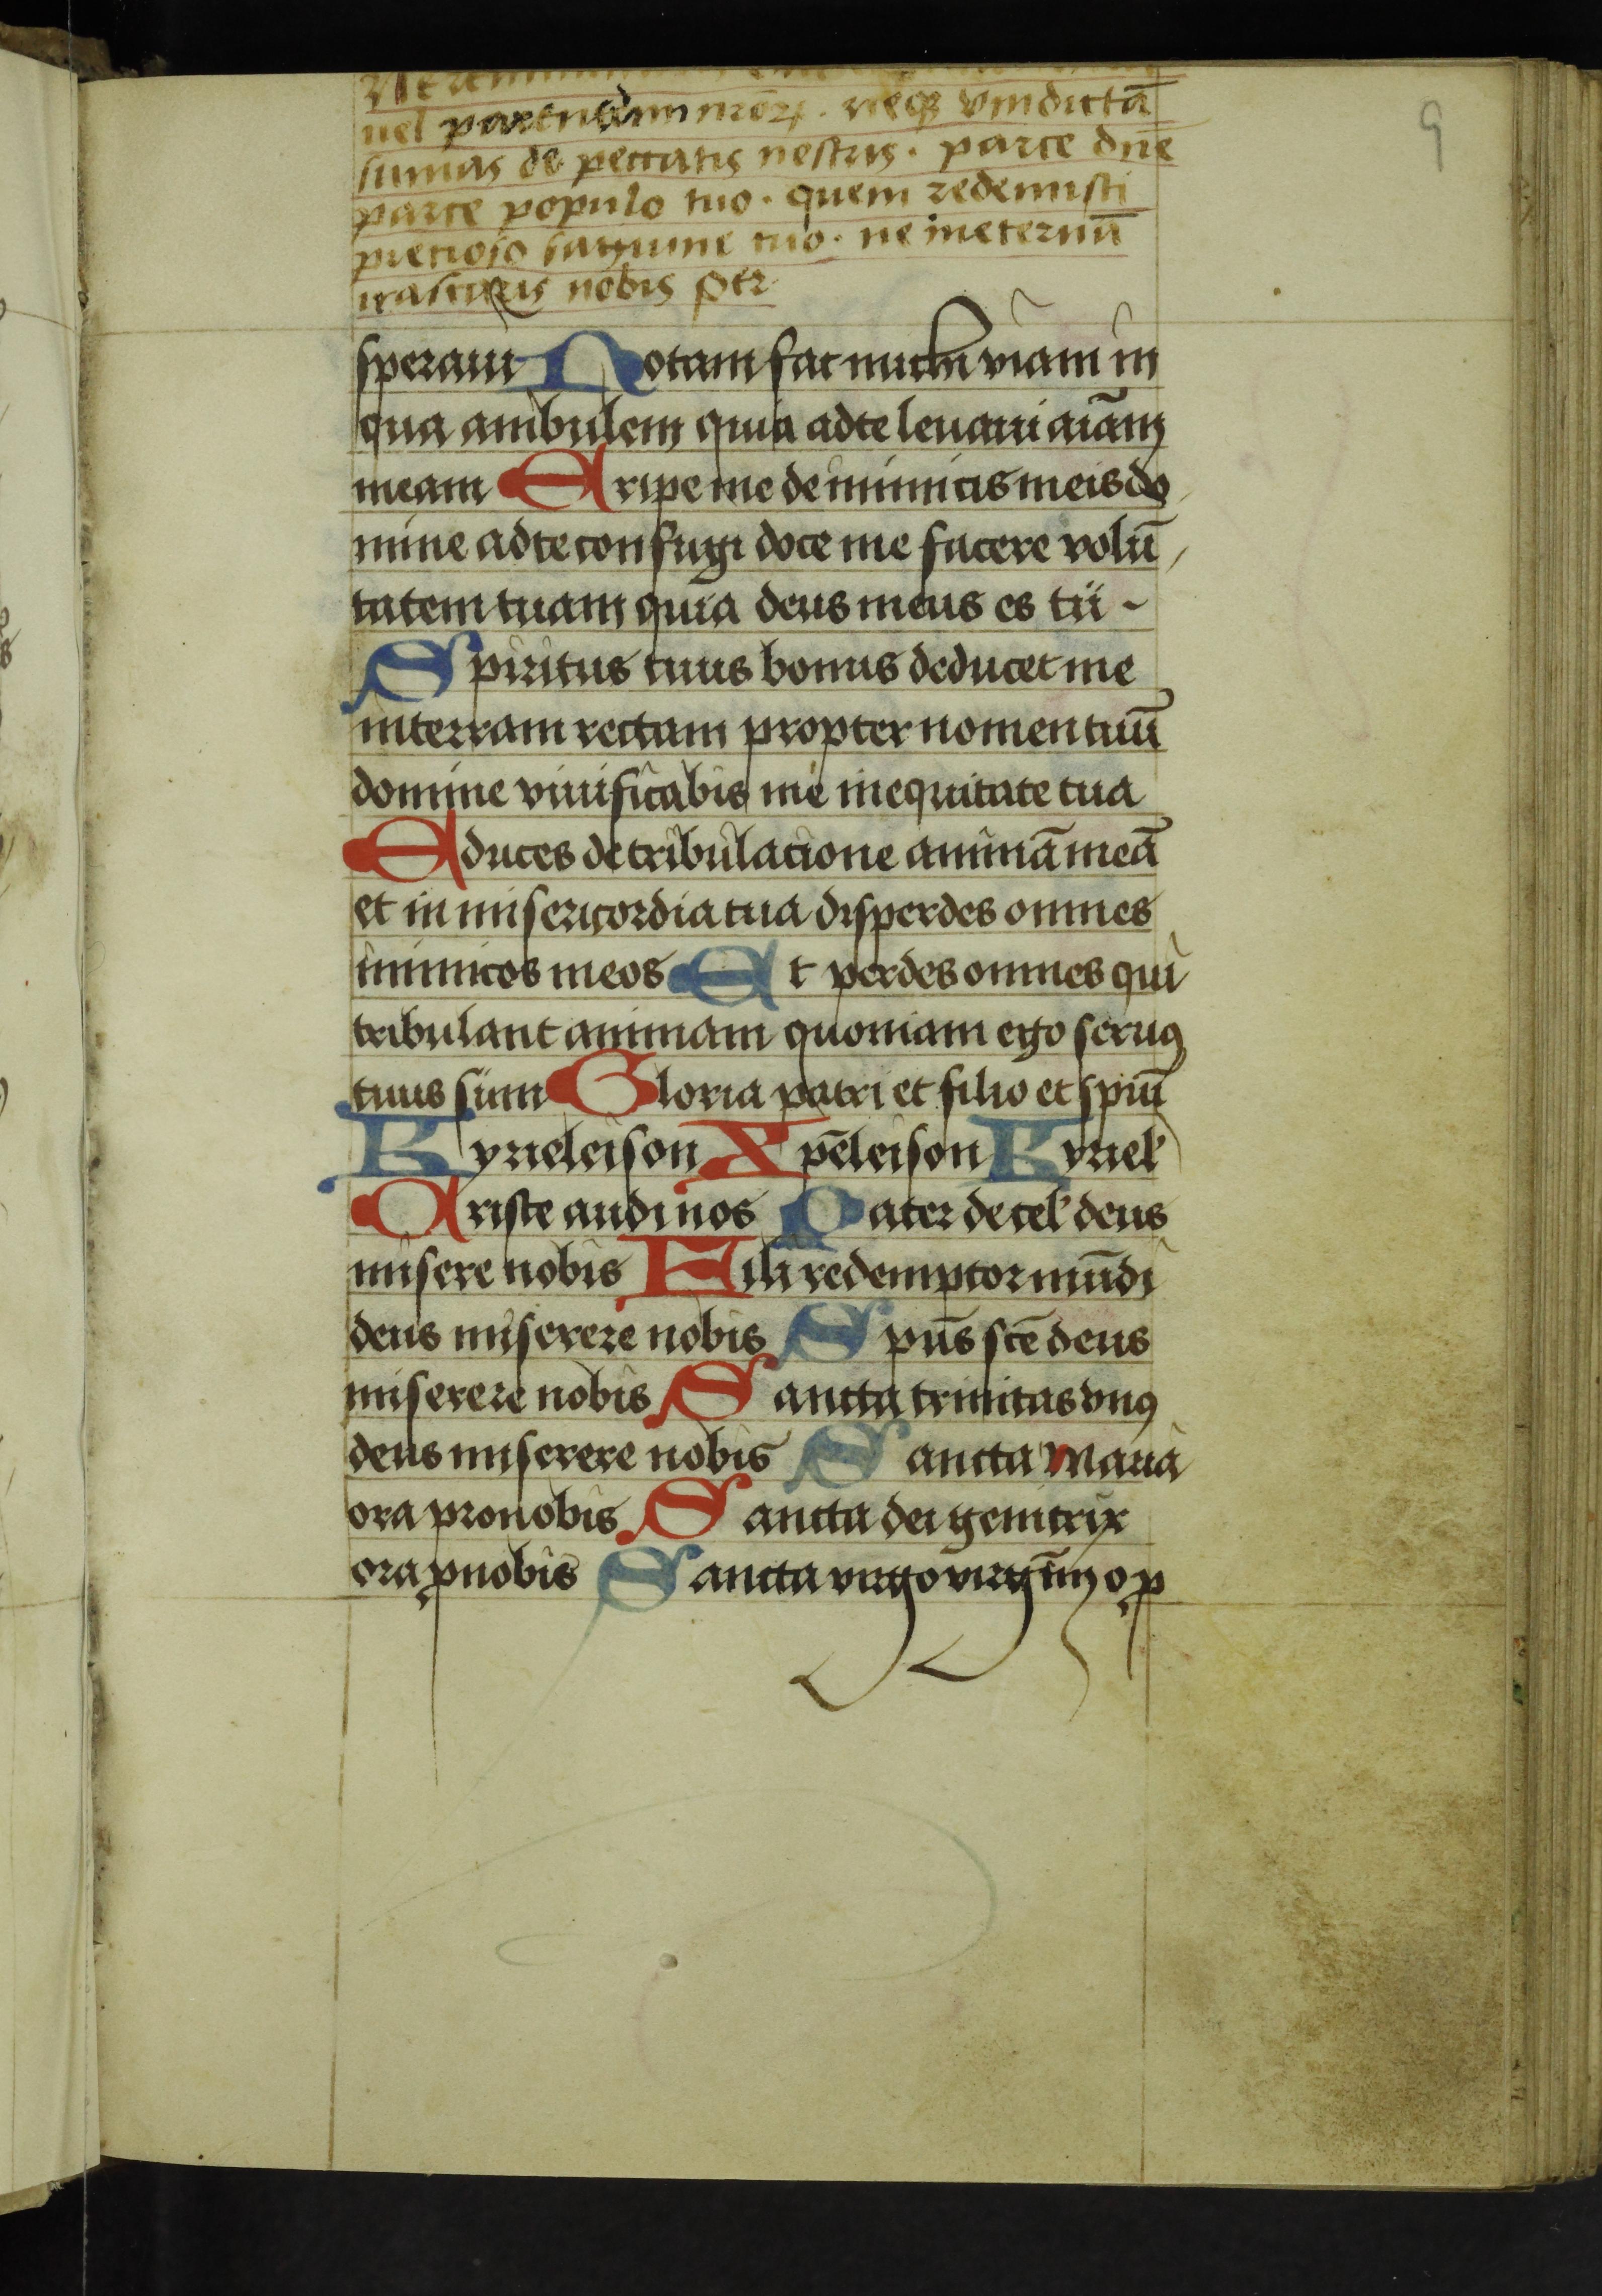 9
uel parentum nrōꝝ. neqꝫ vindictā
sumas de peccatis nostris. parce dn̄e
parce populo tuo. quem redemisti
pretioso sanguine tuo. ne ineternū
irascaris nobis pt̄r
speraui Notam fac michi viam in
qua ambulem quia adte leuaui aiām
meam Eripe me de inimicis meis do
mine adte confugi doce me facere volū
tatem tuam quia deus meus es tu
Spiritus tuus bonus deducet me
interram rectam propter nomen tuū
domine viuificabis me inequitate tua
Educes de tribulacione animā meā
et in misericordia tua disperdes omnes
inimicos meos Et perdes omnes qui
tribulant animam quoniam ego seruꝯ
tuus sum Gloria patri et filio et spiū
Kyrieleison Xp̄eleison Kyriel'
Criste audi nos Pater de cel' deus
misere nobis Fili redemptor mūdi
deus miserere nobis Spūs scē deus
miserere nobis Sancta trinitas vnꝯ
deus miserere nobis Sancta Maria
ora pro nobis Sancta dei genitrix
ora ꝓ nobis Sancta virgo virginū o ꝓ